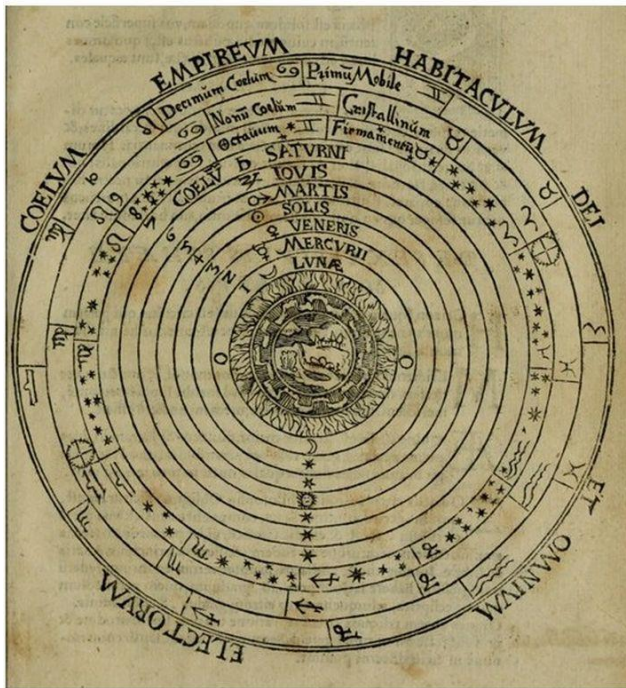 COELVM EMPIREVM HABITACVLVM DEI ET OMNIVM ELECTORVM
Decimum Coelum ♋ Primũ Mobile ♊
Nonũ Coelum ♊ Cristallinum ♉
Octauum ♊ Firmamentũ ♉
COELV̄ ♄ SATVRNI
♃ IOVIS
♂ MARTIS
☉ SOLIS
♀ VENERIS
☿ MERCVRII
☽ LVNÆ
8
7
6
5
4
3
2
1